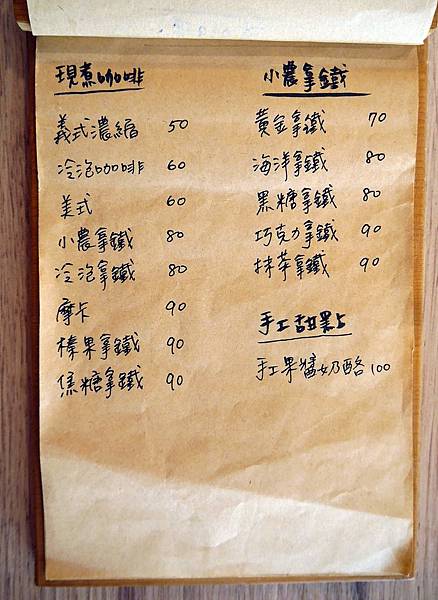 現煮咖啡
義式濃縮 50
冷泡咖啡 60
美式 60
小農拿鐵 80
冷泡拿鐵 80
摩卡 90
榛果拿鐵 90
焦糖拿鐵 90
小農拿鐵
黃金拿鐵 70
海洋拿鐵 80
黑糖拿鐵 80
巧克力拿鐵 90
抹茶拿鐵 90
手工甜點
手工果醬奶酪 100